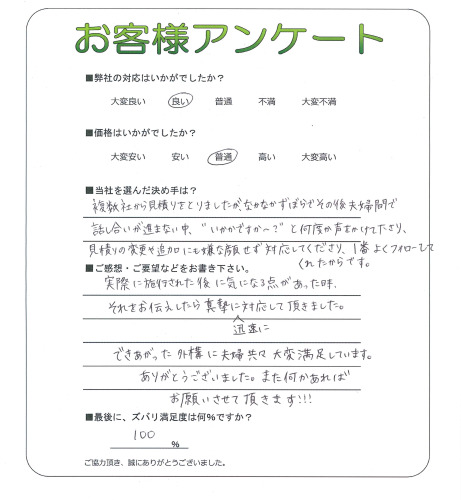 お客様アンケート
■弊社の対応はいかがでしたか？
大変良い 良い 普通 不満 大変不満
■価格はいかがでしたか？
大変安い 安い 普通 高い 大変高い
■当社を選んだ決め手は？
複数社から見積りをとりましたが、なかなかずぼらでその後夫婦間で
話し合いが進まない中、"いかがですか〜？"と何度か声をかけて下さり、
見積りの変更や追加にも嫌な顔せず対応してくださり、1番よくフォローして
くれたからです。
■ご感想・ご要望などをお書き下さい。
実際に施行された後に気になる点があった時、
それをお伝えしたら真摯に対応して頂きました。
迅速に
できあがった外構に夫婦共々大変満足しています。
ありがとうございました。また何かあれば
お願いさせて頂きます!!!
■最後に、ズバリ満足度は何%ですか？
100 %
ご協力頂き、誠にありがとうございました。